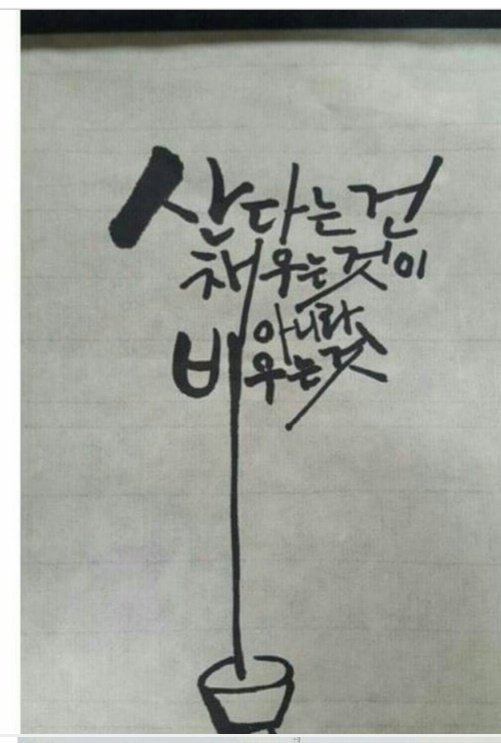 산다는건
채우는것이
아니라
비우는것